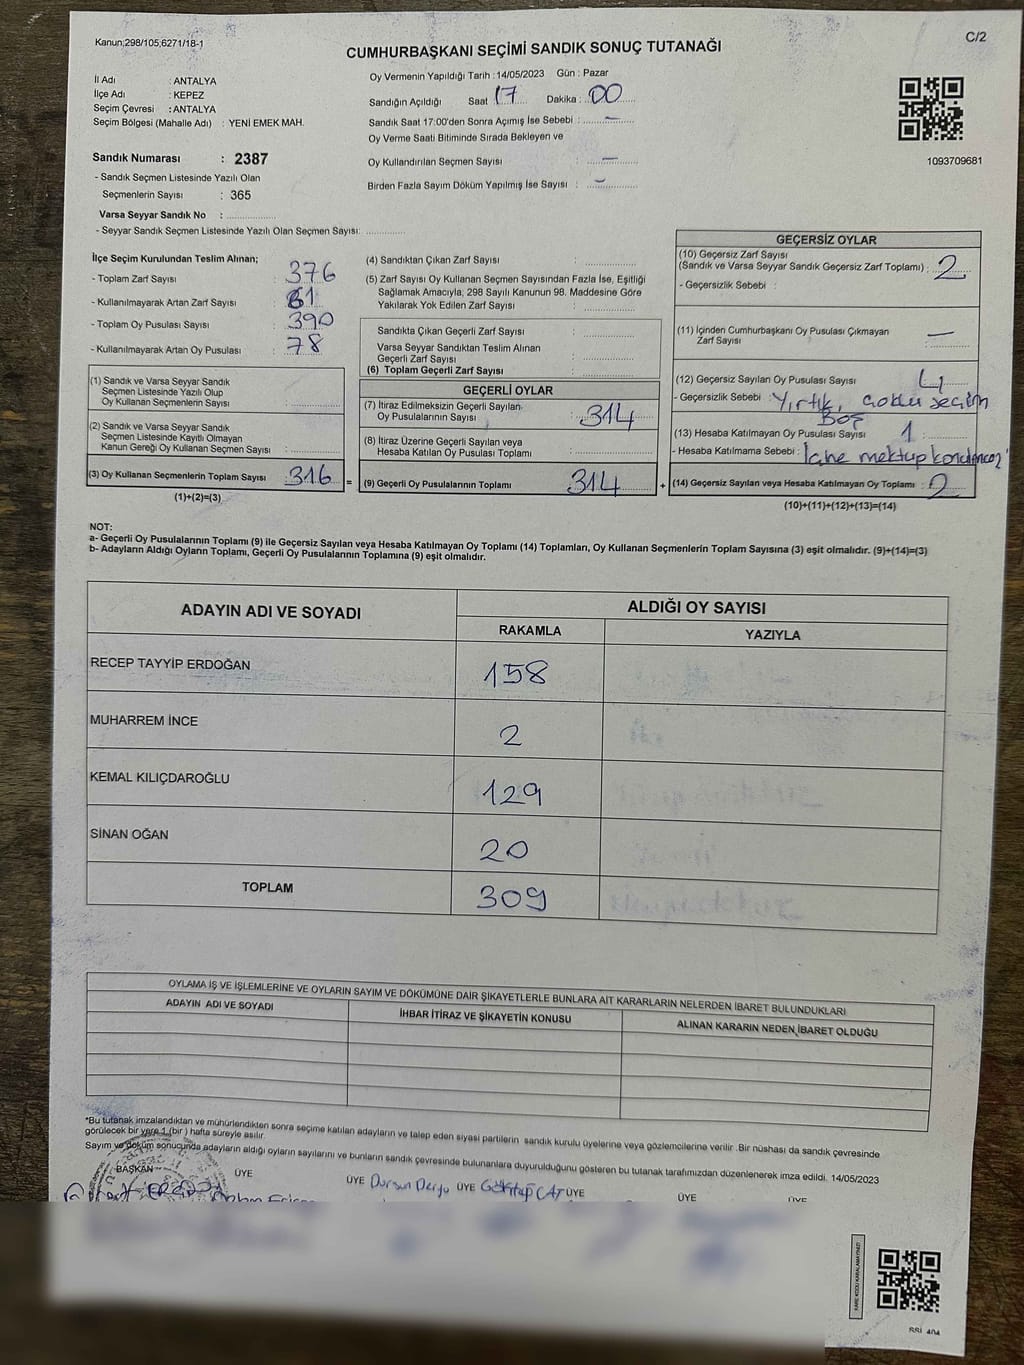 Kanun;298/105,6271/18-1
C/2
CUMHURBAŞKANI SEÇİMİ SANDIK SONUÇ TUTANAĞI
İl Adı : ANTALYA
İlçe Adı : KEPEZ
Seçim Çevresi : ANTALYA
Seçim Bölgesi (Mahalle Adı) : YENİ EMEK MAH.
Sandık Numarası : 2387
- Sandık Seçmen Listesinde Yazılı Olan
Seçmenlerin Sayısı : 365
Varsa Seyyar Sandık No :
- Seyyar Sandık Seçmen Listesinde Yazılı Olan Seçmen Sayısı:
Oy Vermenin Yapıldığı Tarih :14/05/2023 Gün : Pazar
Sandığın Açıldığı Saat 17 Dakika : 00
Sandık Saat 17:00'den Sonra Açımış İse Sebebi : —
Oy Verme Saati Bitiminde Sırada Bekleyen ve
Oy Kullandırılan Seçmen Sayısı : —
Birden Fazla Sayım Döküm Yapılmış İse Sayısı : —
1093709681
İlçe Seçim Kurulundan Teslim Alınan;
- Toplam Zarf Sayısı : 376
- Kullanılmayarak Artan Zarf Sayısı : 61
- Toplam Oy Pusulası Sayısı : 390
- Kullanılmayarak Artan Oy Pusulası : 78
(1) Sandık ve Varsa Seyyar Sandık
Seçmen Listesinde Yazılı Olup
Oy Kullanan Seçmenlerin Sayısı :
(2) Sandık ve Varsa Seyyar Sandık
Seçmen Listesinde Kayıtlı Olmayan
Kanun Gereği Oy Kullanan Seçmen Sayısı :
(3) Oy Kullanan Seçmenlerin Toplam Sayısı : 316 =
(1)+(2)=(3)
(4) Sandıktan Çıkan Zarf Sayısı :
(5) Zarf Sayısı Oy Kullanan Seçmen Sayısından Fazla İse, Eşitliği
Sağlamak Amacıyla, 298 Sayılı Kanunun 98. Maddesine Göre
Yakılarak Yok Edilen Zarf Sayısı :
Sandıkta Çıkan Geçerli Zarf Sayısı :
Varsa Seyyar Sandıktan Teslim Alınan
Geçerli Zarf Sayısı :
(6) Toplam Geçerli Zarf Sayısı :
GEÇERLİ OYLAR
(7) İtiraz Edilmeksizin Geçerli Sayılan
Oy Pusulalarının Sayısı : 314
(8) İtiraz Üzerine Geçerli Sayılan veya
Hesaba Katılan Oy Pusulası Toplamı :
(9) Geçerli Oy Pusulalarının Toplamı : 314 +
GEÇERSİZ OYLAR
(10) Geçersiz Zarf Sayısı
(Sandık ve Varsa Seyyar Sandık Geçersiz Zarf Toplamı) : 2
- Geçersizlik Sebebi :
(11) İçinden Cumhurbaşkanı Oy Pusulası Çıkmayan
Zarf Sayısı : —
(12) Geçersiz Sayılan Oy Pusulası Sayısı : 4
- Geçersizlik Sebebi : Yırtık, çoklu seçim
Boş
(13) Hesaba Katılmayan Oy Pusulası Sayısı 1
- Hesaba Katılmama Sebebi : İçine mektup
(14) Geçersiz Sayılan veya Hesaba Katılmayan Oy Toplamı : 2
(10)+(11)+(12)+(13)=(14)
NOT:
a- Geçerli Oy Pusulalarının Toplamı (9) ile Geçersiz Sayılan veya Hesaba Katılmayan Oy Toplamı (14) Toplamları, Oy Kullanan Seçmenlerin Toplam Sayısına (3) eşit olmalıdır. (9)+(14)=(3)
b- Adayların Aldığı Oyların Toplamı, Geçerli Oy Pusulalarının Toplamına (9) eşit olmalıdır.
ADAYIN ADI VE SOYADI
ALDIĞI OY SAYISI
RAKAMLA YAZIYLA
RECEP TAYYİP ERDOĞAN 158
MUHARREM İNCE 2
KEMAL KILIÇDAROĞLU 129
SİNAN OĞAN 20
TOPLAM 309
OYLAMA İŞ VE İŞLEMLERİNE VE OYLARIN SAYIM VE DÖKÜMÜNE DAİR ŞİKAYETLERLE BUNLARA AİT KARARLARIN NELERDEN İBARET BULUNDUKLARI
ADAYIN ADI VE SOYADI İHBAR İTİRAZ VE ŞİKAYETİN KONUSU ALINAN KARARIN NEDEN İBARET OLDUĞU
*Bu tutanak imzalandıktan ve mühürlendikten sonra seçime katılan adayların ve talep eden siyasi partilerin sandık kurulu üyelerine veya gözlemcilerine verilir .Bir nüshası da sandık çevresinde
görülecek bir yere 1 (bir ) hafta süreyle asılır.
Sayım ve döküm sonucunda adayların aldığı oyların sayılarını ve bunların sandık çevresinde bulunanlara duyurulduğunu gösteren bu tutanak tarafımızdan düzenlenerek imza edildi. 14/05/2023
BAŞKAN ÜYE ÜYE Dursun ÜYE Göktuğ ÇAT ÜYE ÜYE ÜYE